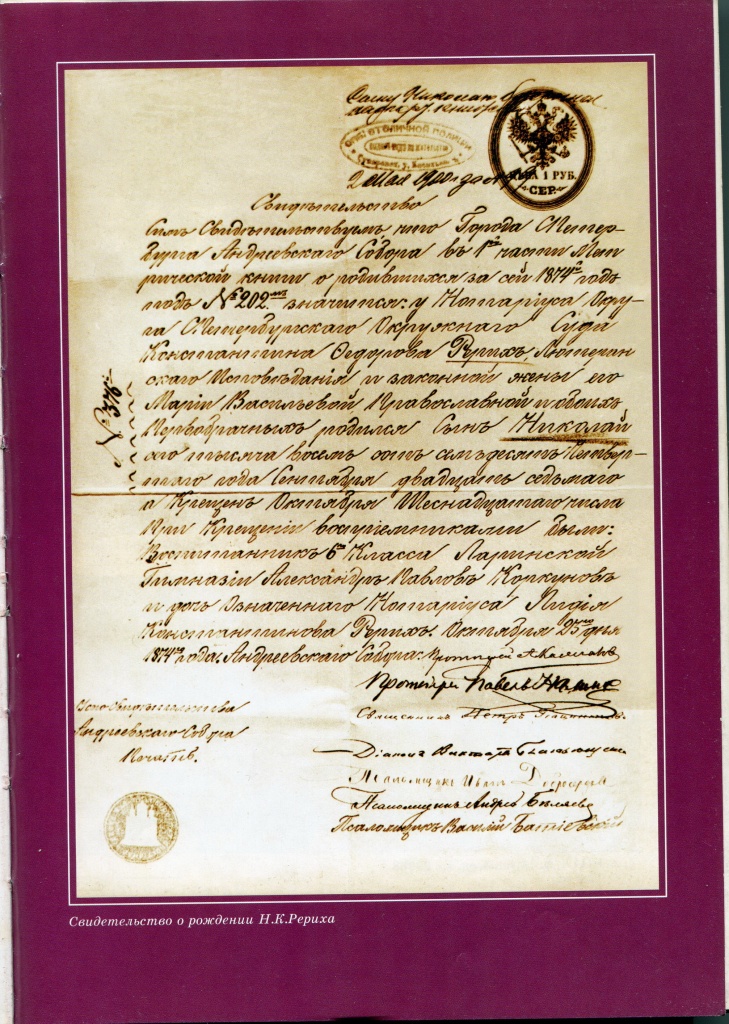 Сыну Николаю
2 Мая 1900 года
ЦѢНА 1 РУБ.
СЕР.
Свидѣтельство
Симъ Свидѣтельствуемъ, что Города С.Петер-
бурга Андреевскаго Собора въ 1ой части Мет
рической книги о родившихся за сей 1874й годъ
подъ № 202мъ значится: у Нотаріуса Окру-
га С.Петербургскаго Окружнаго Суда
Константина Ѳедорова Рерихъ, Лютеран
скаго Исповѣданія и законной жены его
Маріи Васильевой Православной и обоихъ
Первобрачныхъ родился Сынъ Николай
аго тысяча восемъ сотъ семьдесятъ Четвер-
таго года Сентября двадцать седьмаго
а Крещенъ Октября Шестнадцатаго числа
При Крещеніи воспріемниками были:
Воспитанникъ 6го Класса Ларинской
Гимназіи Александръ Павловъ Коркуновъ
и дочь Означеннаго Нотаріуса Лидія
Константинова Рерихъ. Октября 25го дня
1874го года. Андреевскаго Собора: Протоіерей
Протоіерей Павелъ
Священникъ Петръ
Діаконъ Викторъ
Псаломщикъ Иванъ
Псаломщикъ Андрей Бѣляевъ
Псаломщикъ Василій
№ 376
Андреевскаго Собора
Печатью.
Свидетельство о рождении Н.К.Рериха